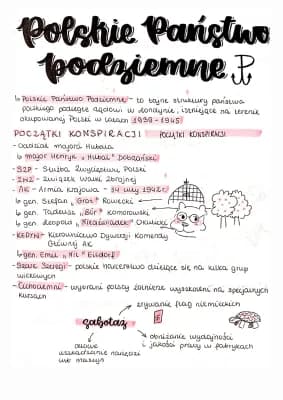 Polskie Państwo
podziemne
↳ Polskie Państwo Podziemne – to tajne struktury państwa
polskiego podległe rządowi w Londynie, istniejące na terenie
okupowanej Polski w latach 1939-1945
POCZĄTKI KONSPIRACJI POCZĄTKI KONSPIRACJI
- Oddział majora Hubala
↳ major Henryk „Hubal" Dobrzański
- SZP - Służba Zwycięstwu Polski
- ZWZ - Związek Walki Zbrojnej
- AK - Armia Krajowa - 14 luty 1942 r.
↳ gen. Stefan „Grot" Rowecki
↳ gen. Tadeusz „Bór" Komorowski
↳ gen. Leopold „Niedźwiadek" Okulicki
- KEDYW - Kierownictwo Dywersji Komendy
Głównej AK
↳ gen. Emil „Nil" Fieldorf
- Szare Szeregi - polskie harcerstwo dzielące się na kilka grup
wiekowych
- Cichociemni - wybrani polscy żołnierze wyszkoleni na specjalnych
kursach
zrywanie flag niemieckich
sabotaż
obniżanie wydajności
i jakości pracy w fabrykach
celowe
uszkadzanie narzędzi
lub maszyn